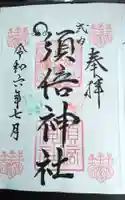 奉拝
式内
須倍神社
令和六年七月